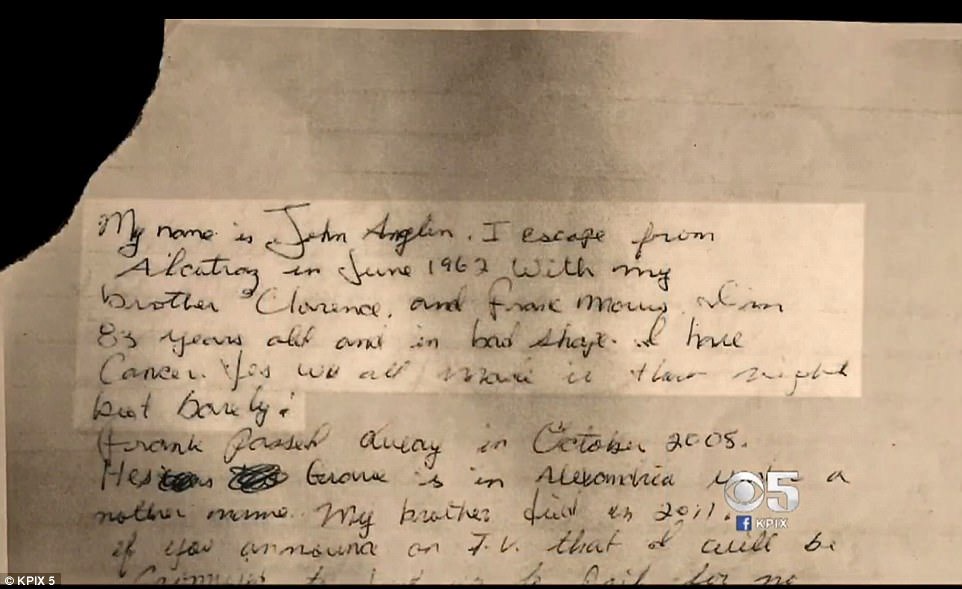 My name is John Anglin. I escape from
Alcatraz in June 1962 With my
brother Clarence, and Frank Morris. I'm
83 years old and in bad shape. I have
Cancer. Yes we all made it that night
but barely!
Frank passed away in October 2008.
Hes Grave is in Alexandria a
nother name. My brother died in 2011.
If you announce on T.V. that I will be
to jail for no
5
f KPIX
© KPIX 5